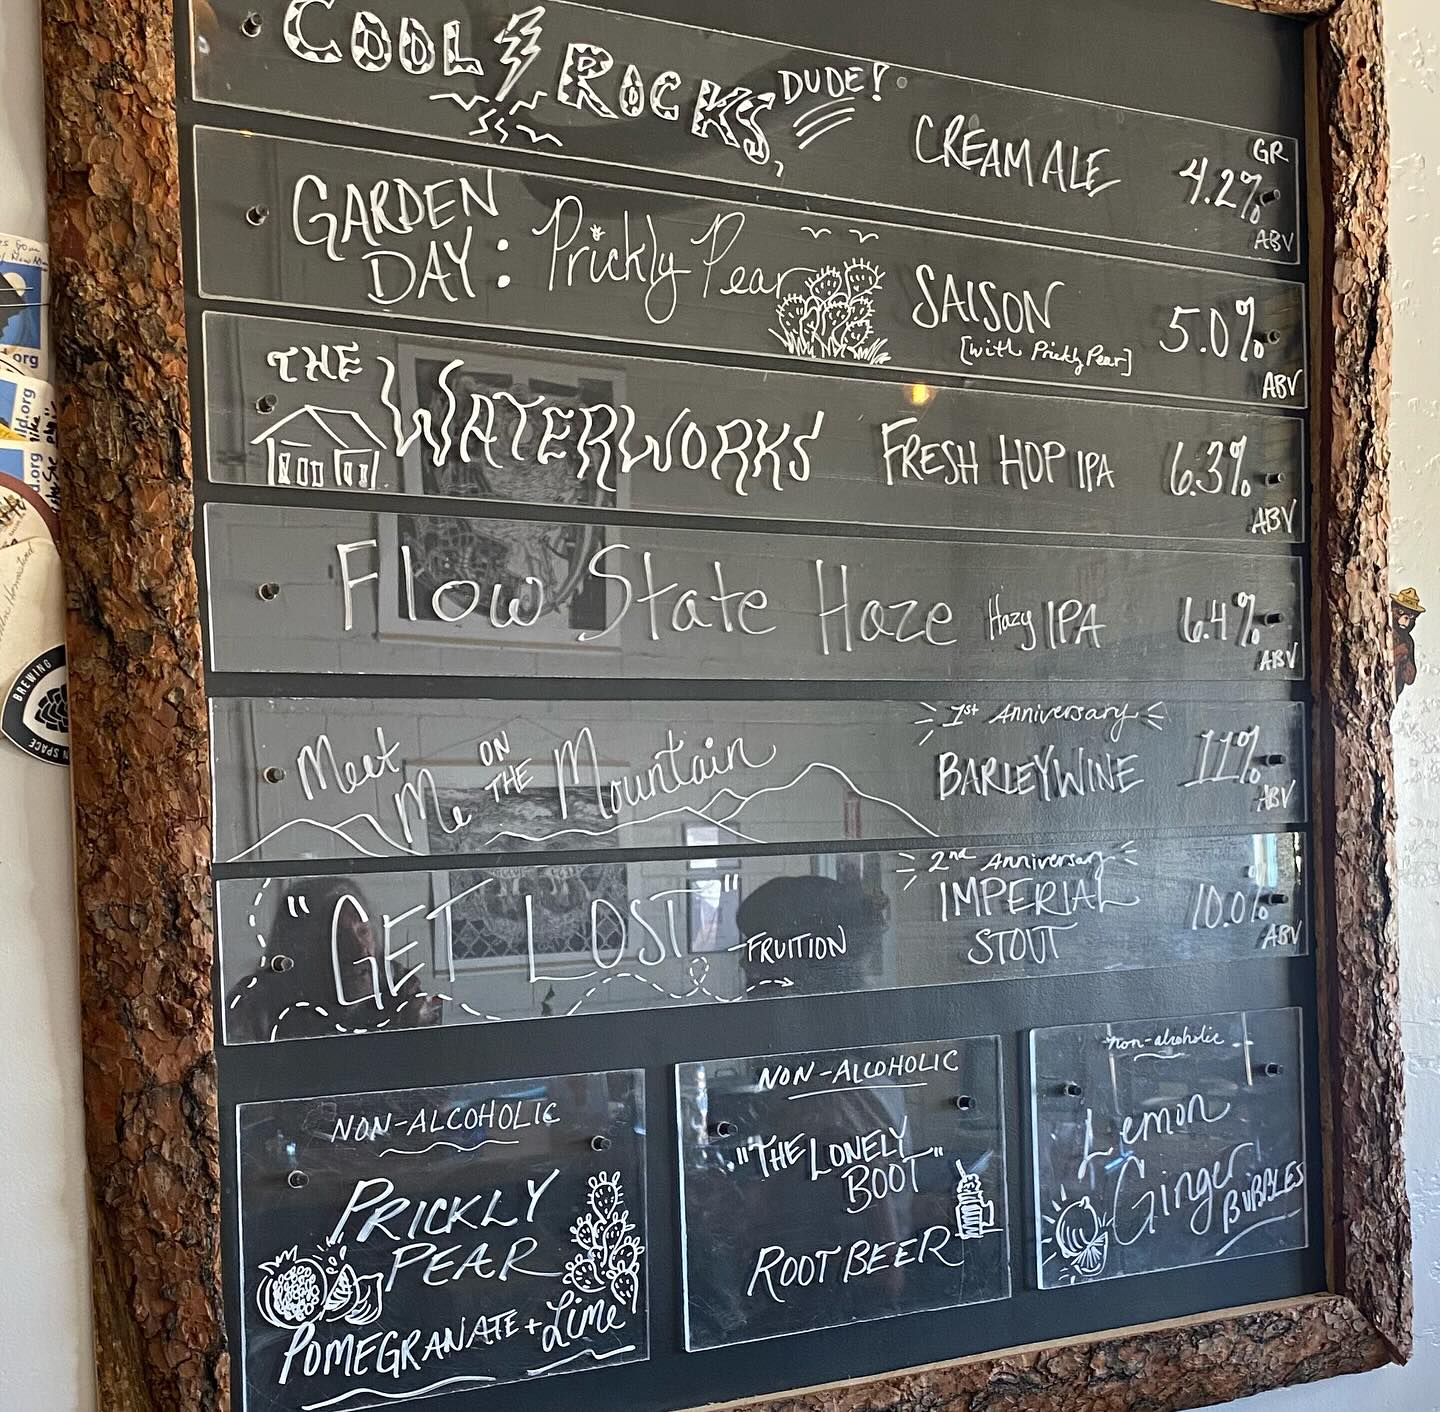 COOL ROCKS, DUDE!
CREAM ALE
GR
4.2%
ABV
GARDEN
DAY: Prickly Pear
SAISON
[with Prickly Pear]
5.0%
ABV
THE WATERWORKS
FRESH HOP IPA
6.3%
ABV
Flow State Haze
Hazy IPA
6.4%
ABV
Meet Me ON THE Mountain
1st Anniversary
BARLEYWINE
11%
ABV
"GET LOST" -FRUITION
2nd Anniversary
IMPERIAL
STOUT
10.0%
ABV
NON-ALCOHOLIC
PRICKLY
PEAR
POMEGRANATE + Lime
NON-ALCOHOLIC
"THE LONELY
BOOT"
ROOT BEER
non-alcoholic
Lemon
Ginger
BUBBLES
.org
BREWING